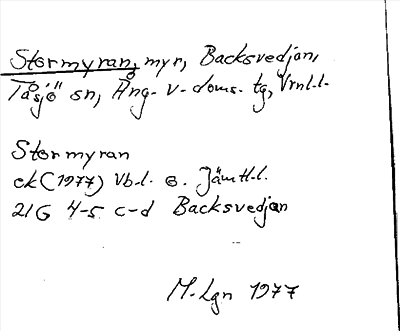 Stormyran, myr, Backsvedjan,
Tåsjö sn, Ång. v. doms. tg, Vrnl.l.
Stormyran
ek (1977) Vb.l. o. Jämtl.l.
21G 4-5 c-d Backsvedjan
M. Lgn 1977